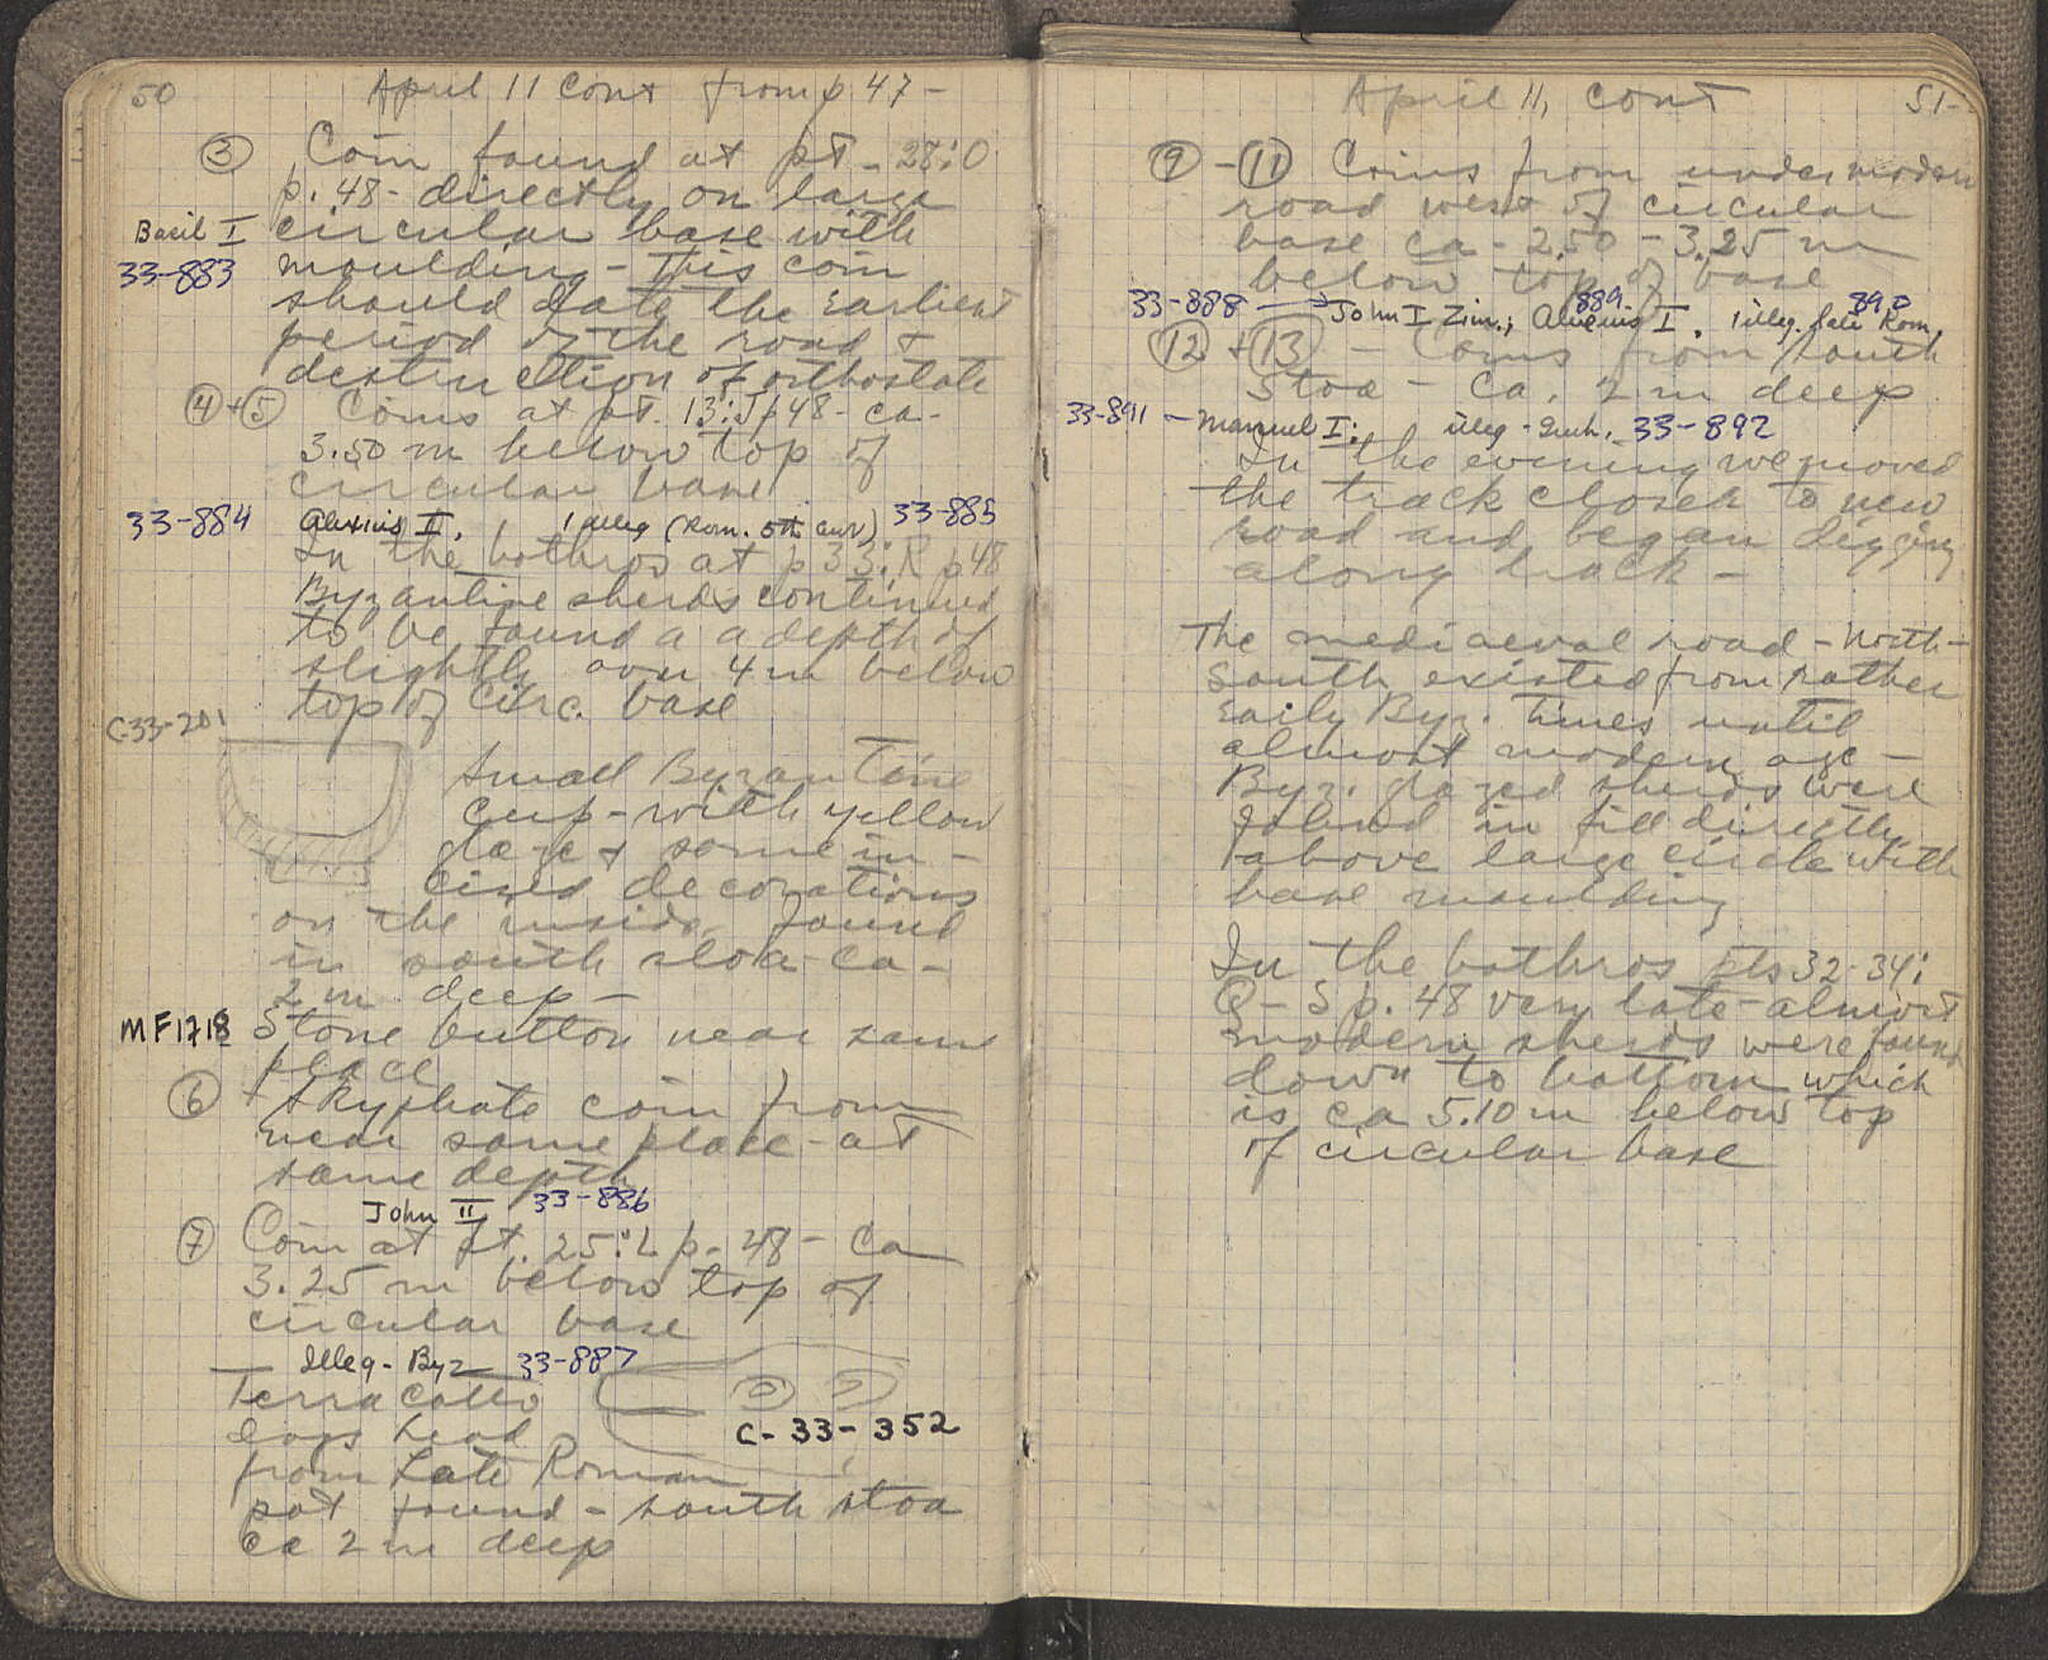 50
April 11 cont from p 47 -
③ Coin found at pt. 28:O
p. 48 - directly on large
Basil I circular base with
33-883 moulding - This coin
should date the earliest
period of the road +
destruction of orthostate
④ + ⑤ Coins at pt. 13:J p 48 - ca -
3.50 m below top of
circular base
33-884 Alexius II. 1 illeg (Rom. 5th cent) 33-885
In the bothros at p 33:R p 48
Byzantine sherds continued
to be found a a depth of
slightly over 4 m below
top of circ. base
C-33-201
Small Byzantine
cup - with yellow
glaze + some in-
cised decorations
on the inside found
in south stoa - ca -
2 m deep -
MF1718 Stone button near same
place
⑥ + skyphate coin from
near same place - at
same depth
John II 33-886
⑦ Coin at pt. 25:L p. 48 - ca
3.25 m below top of
circular base
Illeg - Byz 33-887
Terra cotta
dogs head
C-33-352
from Late Roman
pot found - south stoa
ca 2 m deep
April 11, cont
51-
⑨ - ⑪ Coins from under modern
road west of circular
base ca - 2.50 - 3.25 m
below top of base
33-888 → John I Zim.; 889 Alexius I, 1 illeg. late Rom. 890
⑫ + ⑬ - Coins from south
Stoa - ca. 2 m deep
33-891 - Manuel I; illeg - 33-892
In the evening we moved
the track closer to new
road and began digging
along track -
The mediaeval road - North -
South existed from rather
early Byz. times until
almost modern age -
Byz. glazed sherds were
found in fill directly
above large circle with
base moulding
In the bothros pts 32-34:
Q-S p. 48 very late - almost
modern sherds were found
down to bottom which
is ca 5.10 m below top
of circular base